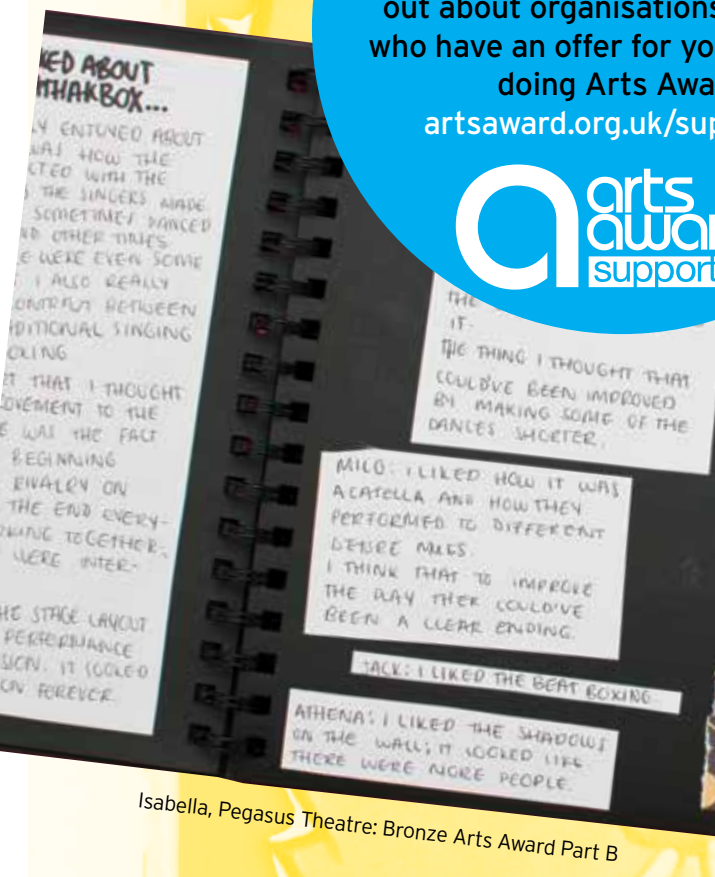 out about organisations
who have an offer for yo
doing Arts Awa
artsaward.org.uk/sup
arts
awar
support
KED ABOUT
THAKBOX...
Y ENTUVED ABOUT
WAS HOW THE
CTED WITH THE
THE SINGERS MADE
SOMETIMES DANCED
ND OTHER TIMES
E WERE EVEN SOME
I ALSO REALLY
BETWEEN
DITIONAL SINGING
OXING
THAT I THOUGHT
OVEMENT TO THE
E WAS THE FACT
BEGINNING
RIVALRY ON
THE END EVERY-
RKING TOGETHER.
WERE INTER-
HE STAGE LAYOUT
PERFORMANCE
SION. IT LOOKED
ON FOREVER.
THE
IT.
THE THING I THOUGHT THAT
COULD'VE BEEN IMPROVED
BY MAKING SOME OF THE
DANCES SHORTER.
MILO: I LIKED HOW IT WAS
ACATELLA AND HOW THEY
PERFORMED TO DIFFERENT
I THINK THAT TO IMPROVE
THE PLAY THER COULD'VE
BEEN A CLEAR ENDING.
JACK: I LIKED THE BEAT BOXING.
ATHENA: I LIKED THE SHADOWS
ON THE WALL; IT LOOKED LIKE
THERE WERE MORE PEOPLE.
Isabella, Pegasus Theatre: Bronze Arts Award Part B